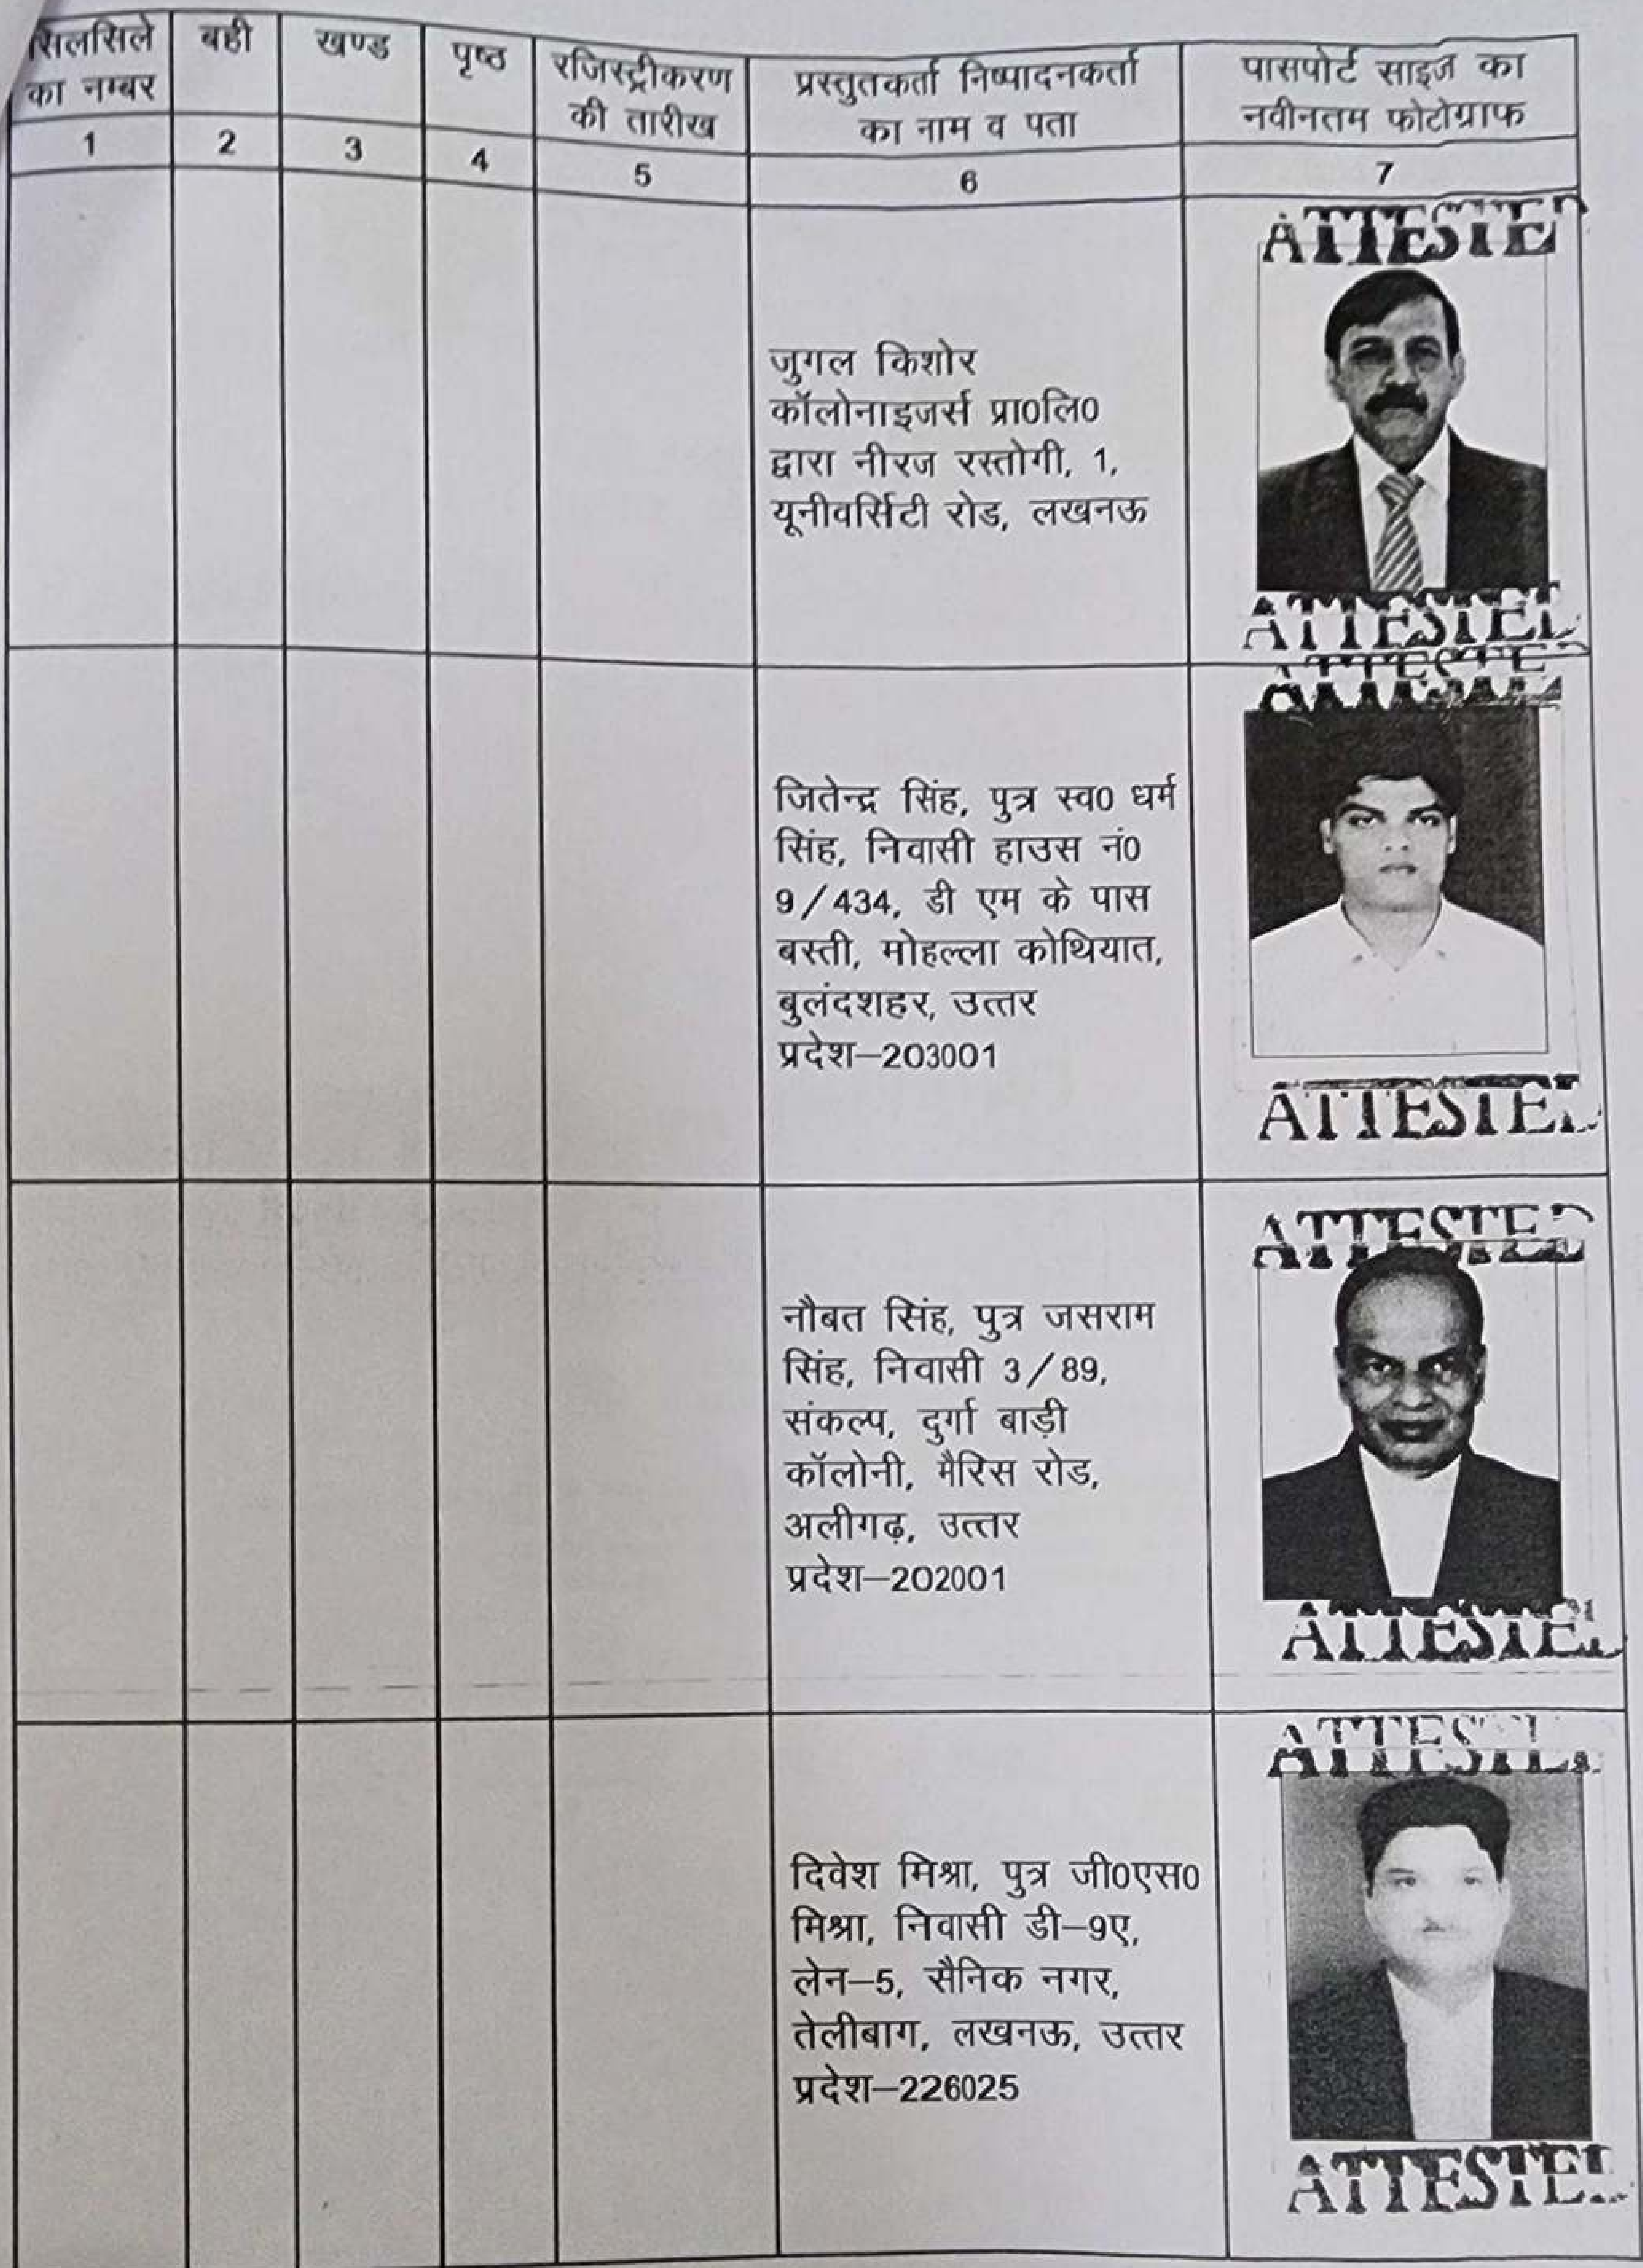 सिलसिले का नम्बर
बही
खण्ड
पृष्ठ
रजिस्ट्रीकरण की तारीख
प्रस्तुतकर्ता निष्पादनकर्ता का नाम व पता
पासपोर्ट साइज का नवीनतम फोटोग्राफ
1
2
3
4
5
6
7
ATTESTED
जुगल किशोर
कॉलोनाइजर्स प्रा0लि0
द्वारा नीरज रस्तोगी, 1,
यूनीवर्सिटी रोड, लखनऊ
ATTESTED
ATTESTED
जितेन्द्र सिंह, पुत्र स्व0 धर्म
सिंह, निवासी हाउस नं0
9/434, डी एम के पास
बस्ती, मोहल्ला कोथियात,
बुलंदशहर, उत्तर
प्रदेश–203001
ATTESTED
ATTESTED
नौबत सिंह, पुत्र जसराम
सिंह, निवासी 3/89,
संकल्प, दुर्गा बाड़ी
कॉलोनी, मैरिस रोड,
अलीगढ़, उत्तर
प्रदेश–202001
ATTESTED
ATTESTED
दिवेश मिश्रा, पुत्र जी0एस0
मिश्रा, निवासी डी–9ए,
लेन–5, सैनिक नगर,
तेलीबाग, लखनऊ, उत्तर
प्रदेश–226025
ATTESTED